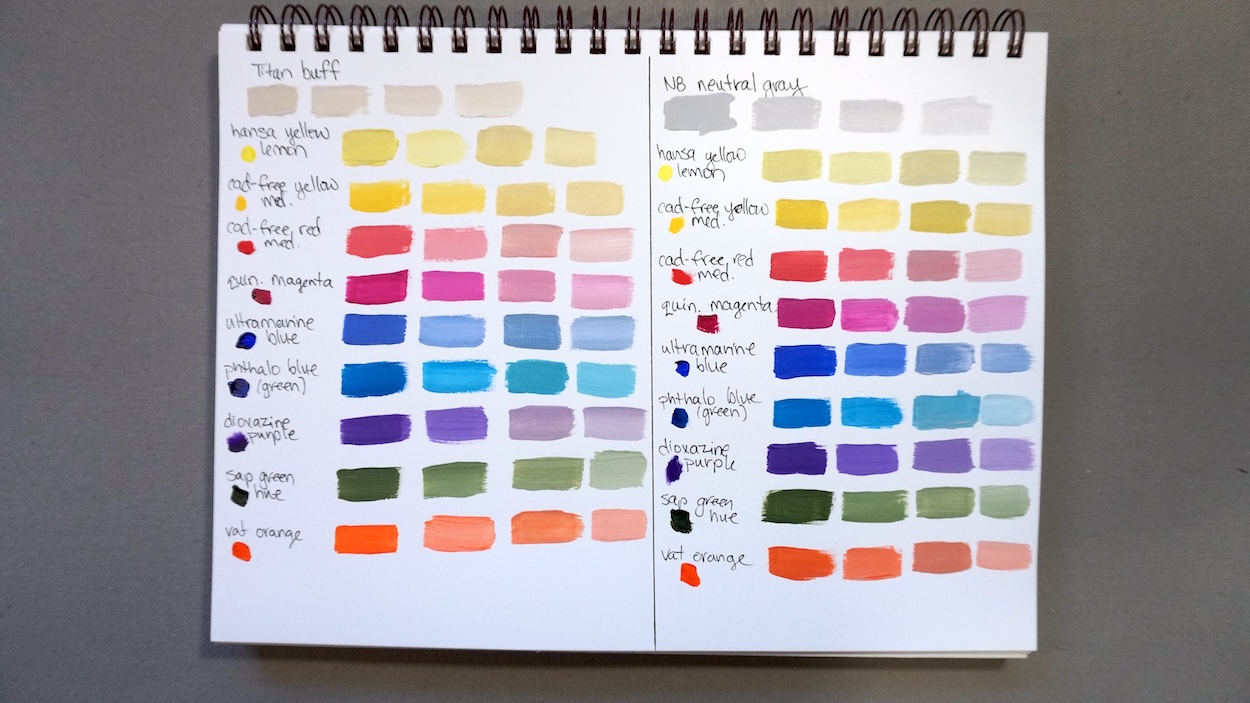 Titan buff
hansa yellow
lemon
cad-free yellow
med.
cad-free red
med.
quin. magenta
ultramarine
blue
phthalo blue
(green)
dioxazine
purple
sap green
hue
vat orange
N8 neutral gray
hansa yellow
lemon
cad-free yellow
med.
cad-free red
med.
quin. magenta
ultramarine
blue
phthalo blue
(green)
dioxazine
purple
sap green
hue
vat orange